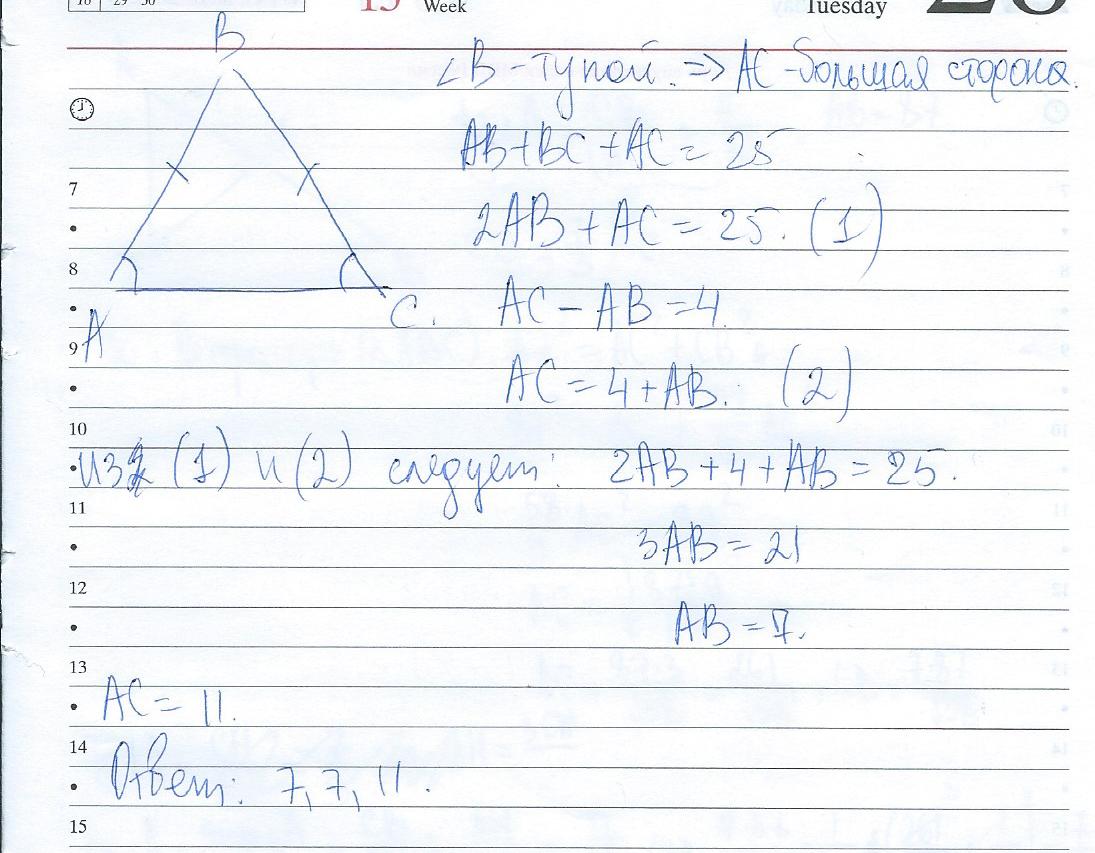 18 29 30
15 Week
Tuesday 28
B
∠B - тупой. => AC - большая сторона.
AB + BC + AC = 25
7
2AB + AC = 25. (1)
8
AC - AB = 4
A C.
9
AC = 4 + AB. (2)
10
из (1) и (2) следует: 2AB + 4 + AB = 25.
11
3AB = 21
12
AB = 7.
13
AC = 11.
14
Ответ: 7, 7, 11.
15